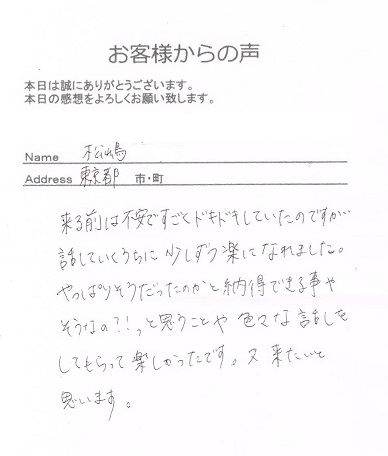 お客様からの声
本日は誠にありがとうございます。
本日の感想をよろしくお願い致します。
Name 松嶋
Address 東京都 市・町
来る前は不安ですごくドキドキしていたのですが
話していくうちに少しずつ楽になれました。
やっぱりそうだったのかと納得できる事や
そうなの?!っと思うことや色々な話しを
してもらって楽しかったです。又来たいと
思います。